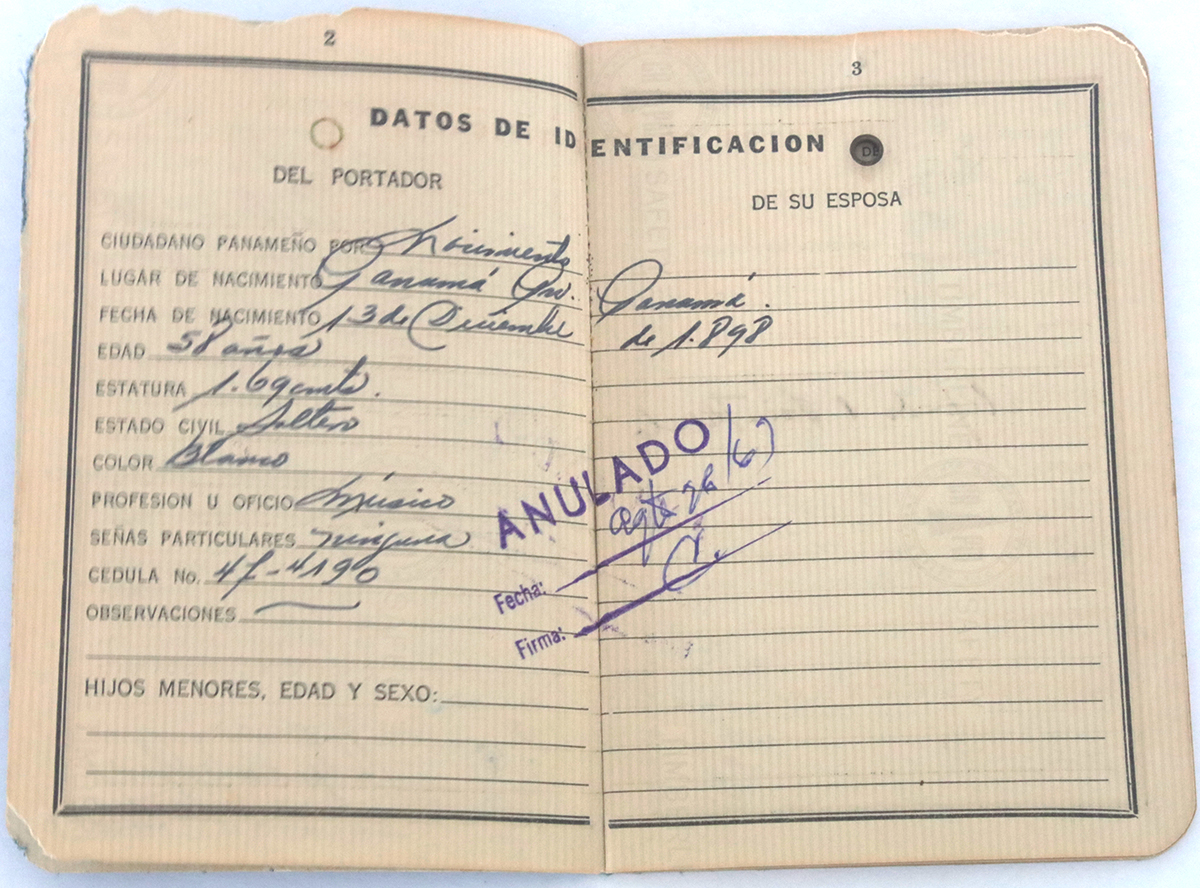 2
3
DATOS DE IDENTIFICACION
DEL PORTADOR
DE SU ESPOSA
CIUDADANO PANAMEÑO POR Nacimiento
LUGAR DE NACIMIENTO Panamá Prv. Panamá.
FECHA DE NACIMIENTO 13 de Diciembre de 1.898
EDAD 58 años
ESTATURA 1.69 cmts.
ESTADO CIVIL Soltero
COLOR Blanco
PROFESION U OFICIO Músico
SEÑAS PARTICULARES ninguna
CEDULA No. 47-4190
OBSERVACIONES
HIJOS MENORES, EDAD Y SEXO:
ANULADO
Fecha:
Firma: